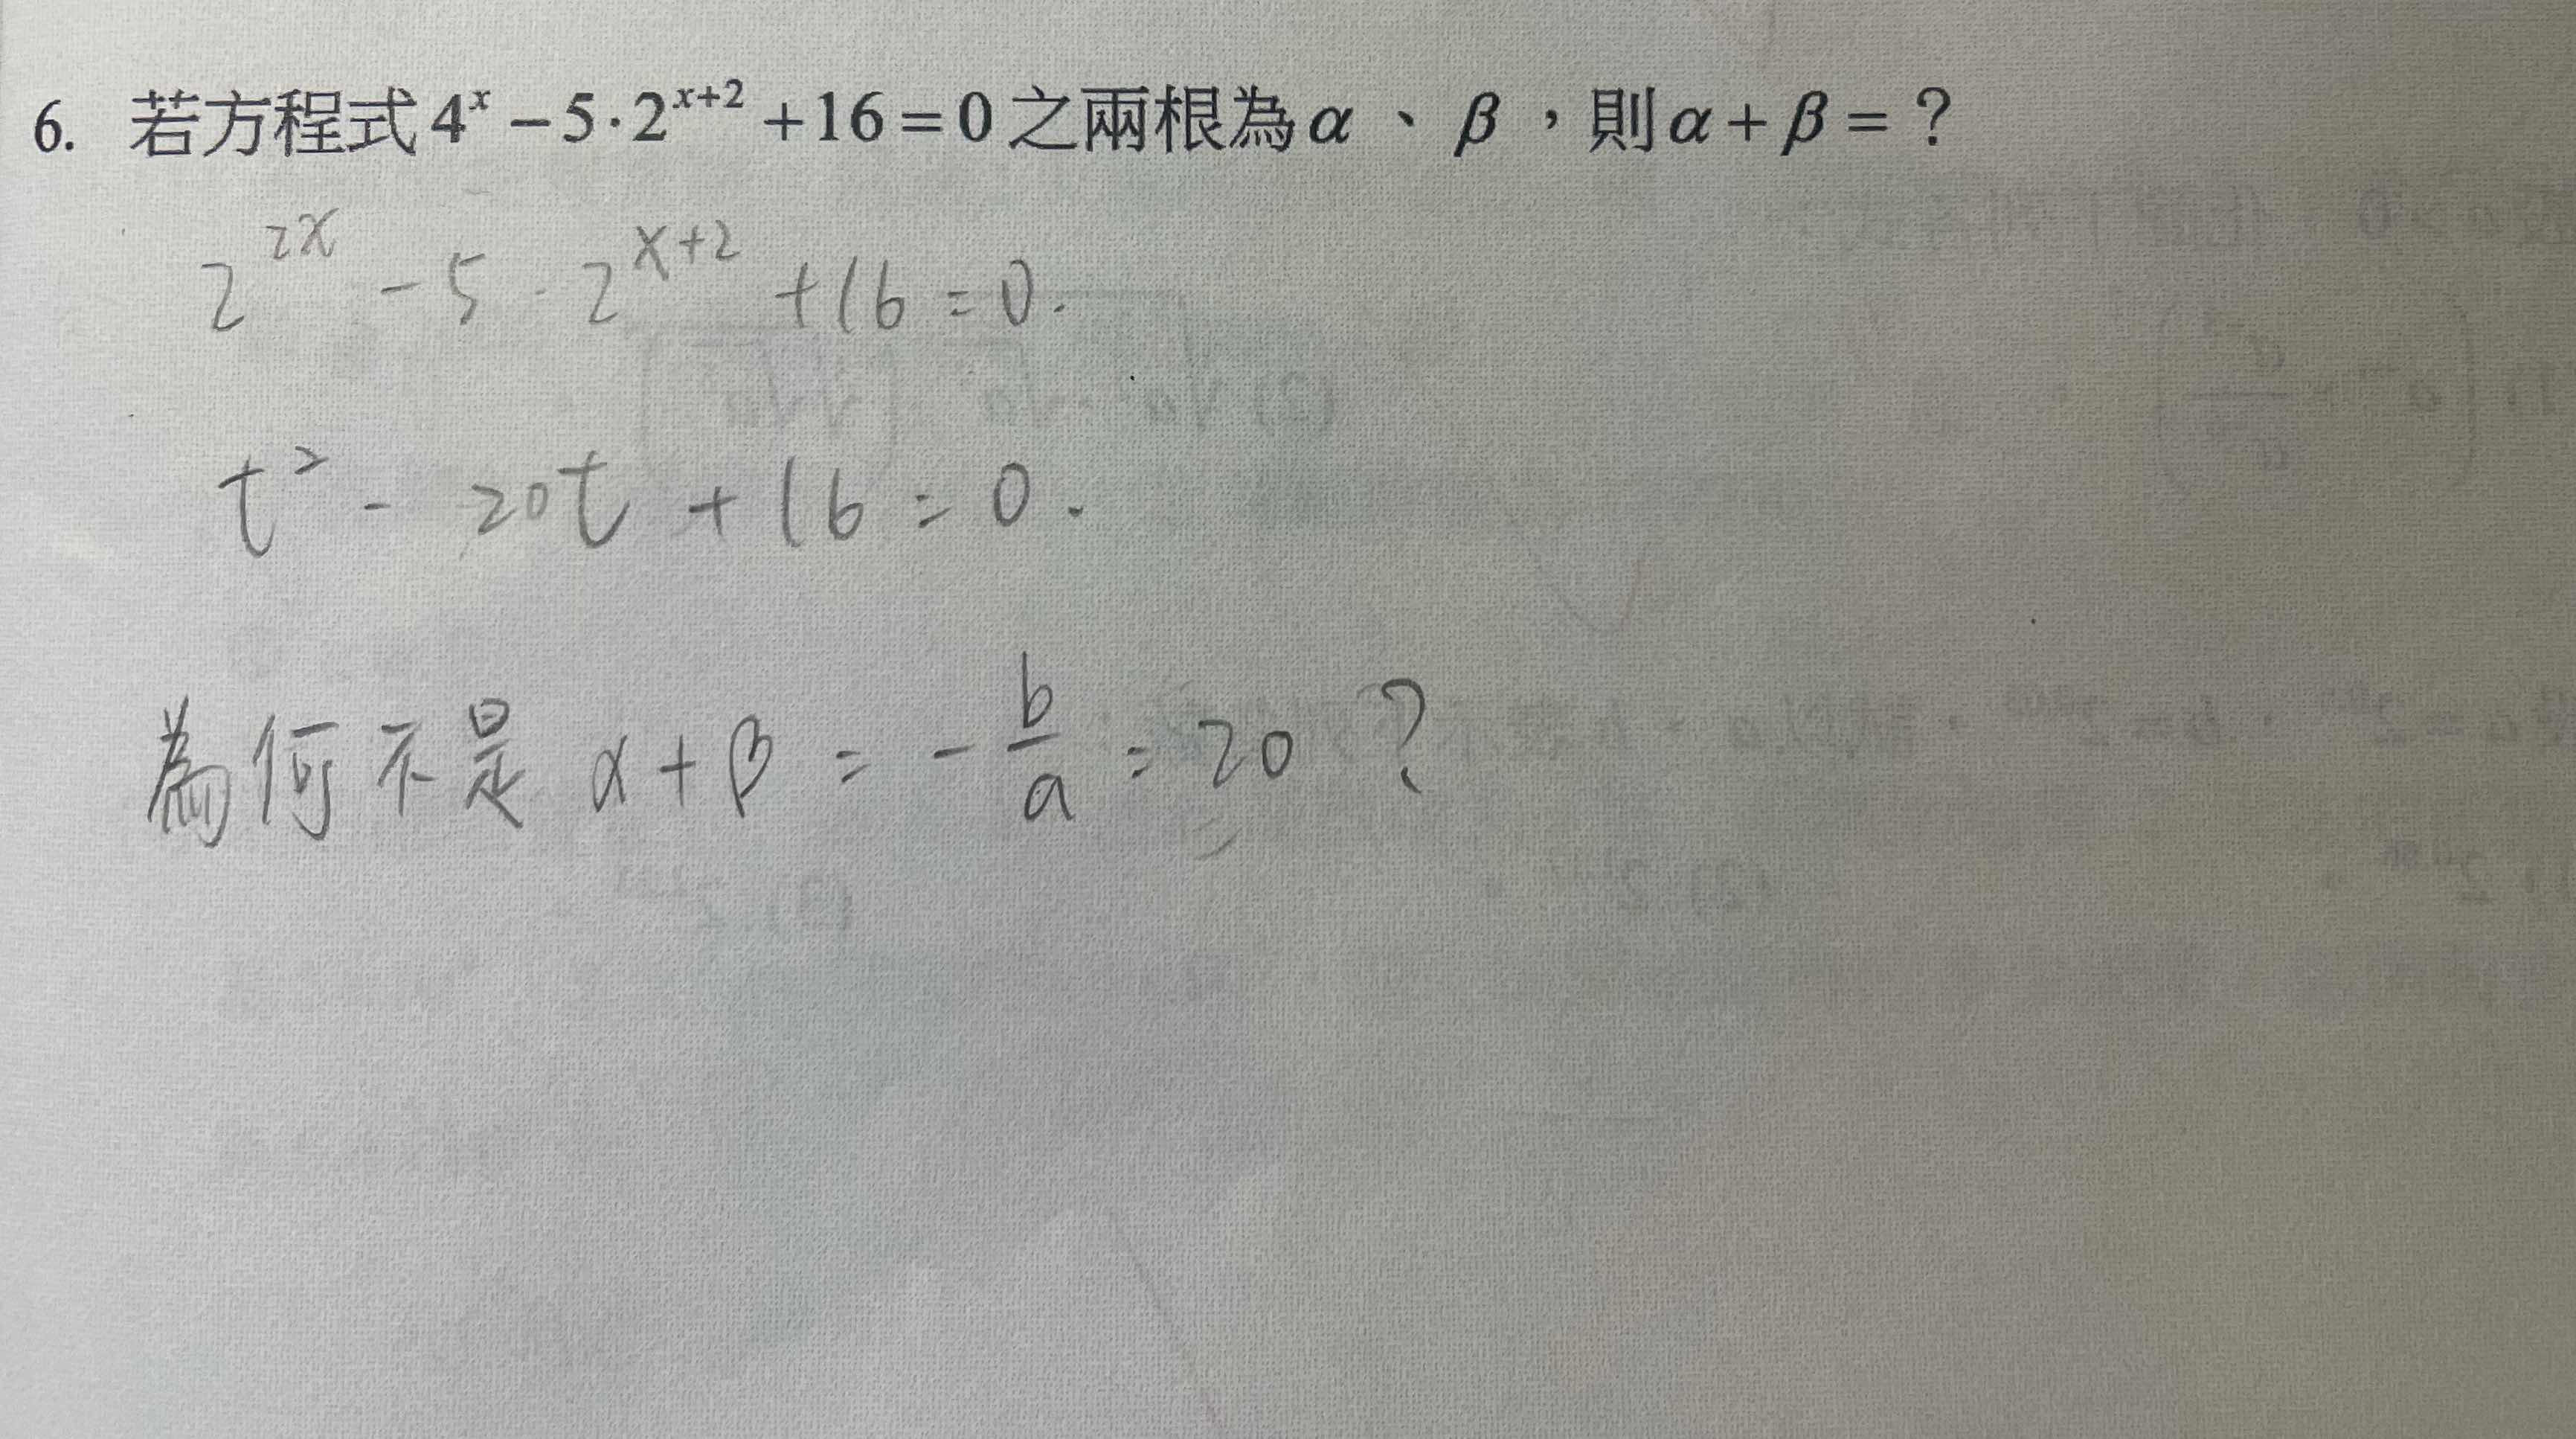 6. 若方程式 4^x − 5·2^{x+2} + 16 = 0 之兩根為 α、β，則 α + β = ？
2^{2x} - 5 · 2^{x+2} + 16 = 0.
t² - 20t + 16 = 0.
為何不是 α + β = - b/a = 20 ?